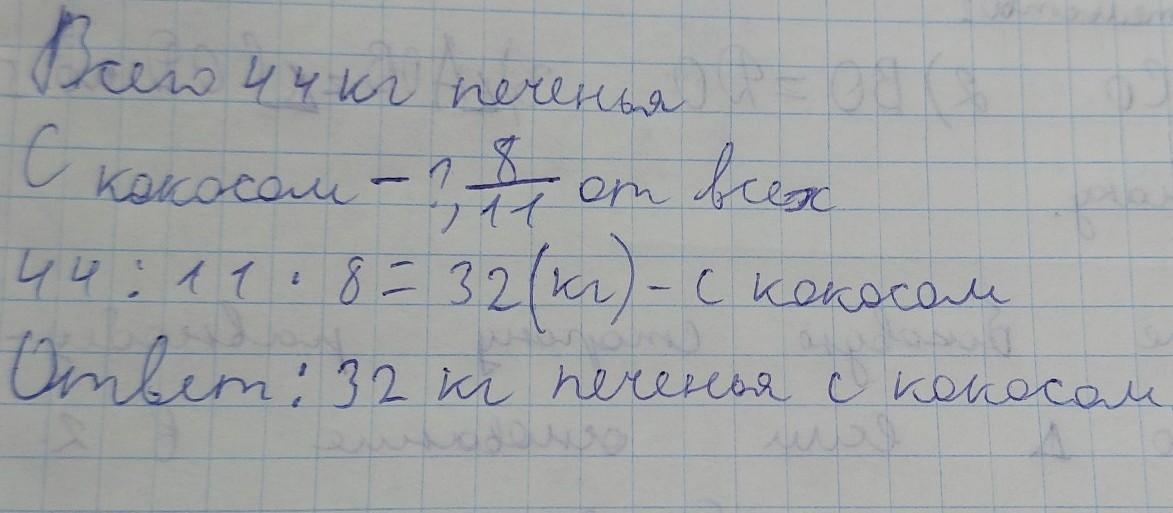 Всего 44 кг печенья
С кокосом - ?, 8/11 от всех
44 : 11 · 8 = 32 (кг) - с кокосом
Ответ: 32 кг печенья с кокосом